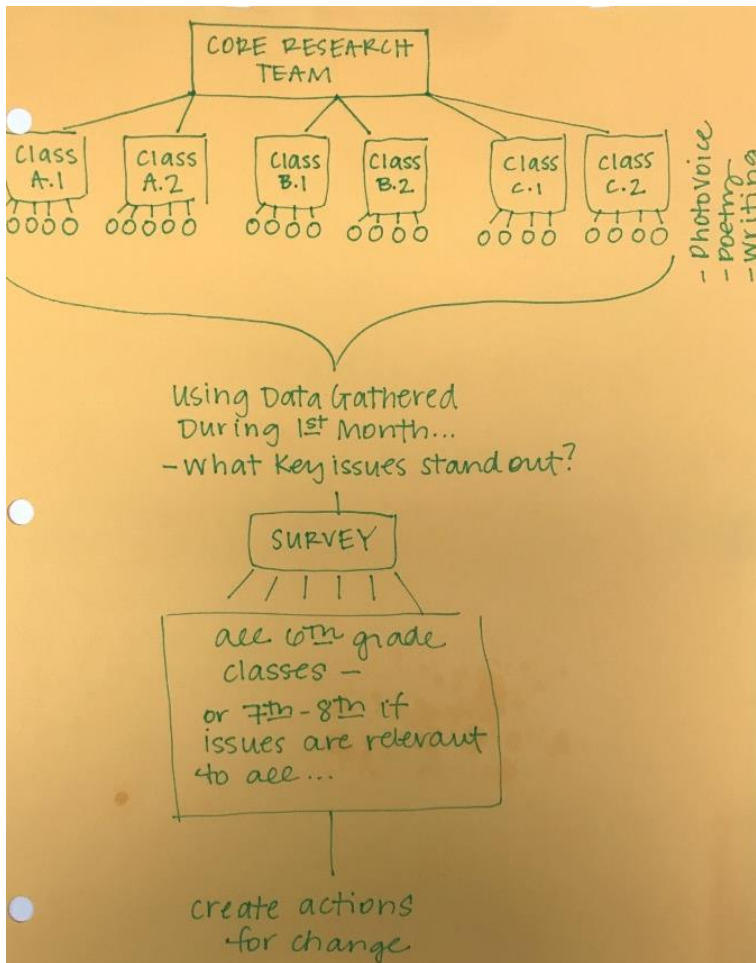 CORE RESEARCH
TEAM
Class
A.1
Class
A.2
Class
B.1
Class
B.2
Class
C.1
Class
C.2
- Photovoice
- Poetry
- Writing
Using Data Gathered
During 1st Month...
- What Key issues stand out?
SURVEY
all 6th grade
classes -
or 7th - 8th if
issues are relevant
to all...
create actions
for change